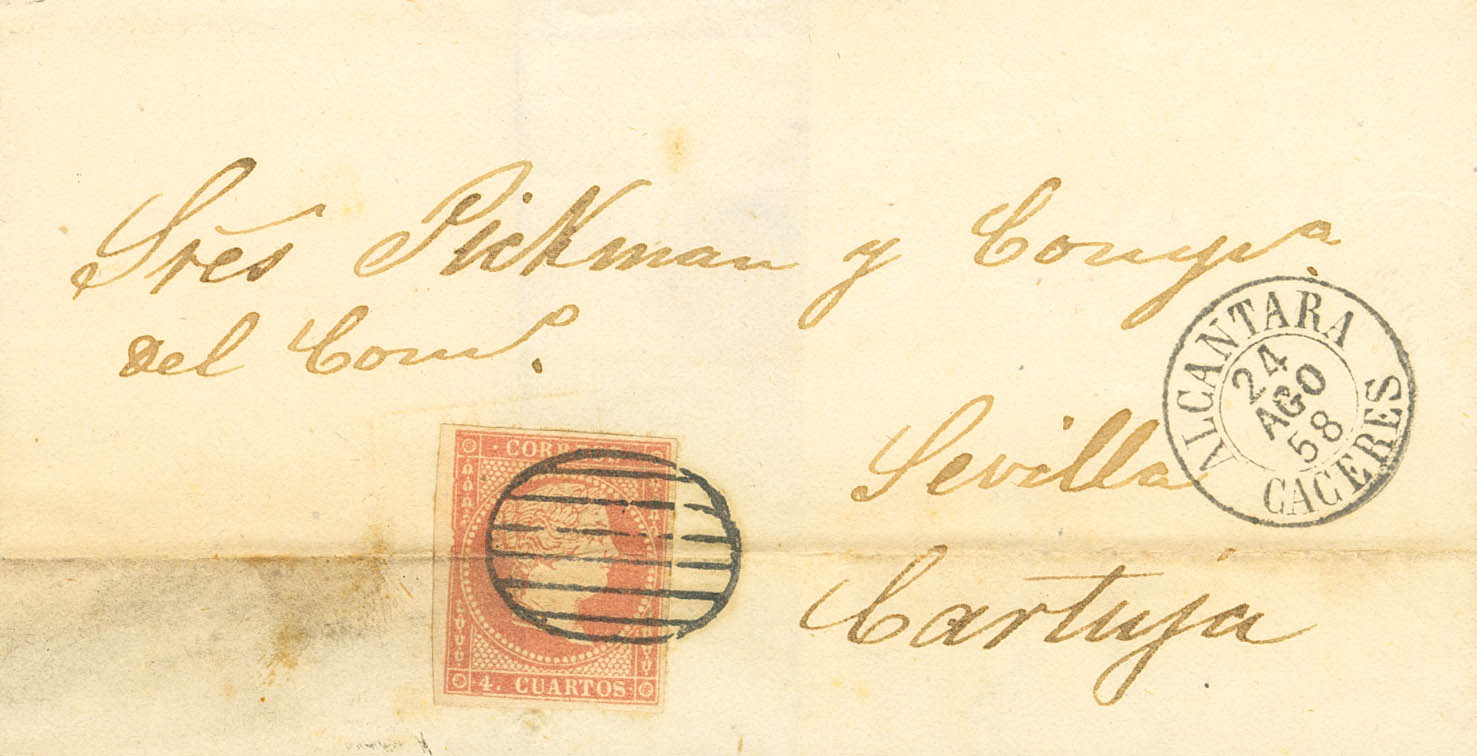 Sres Pickman y Compa.
del Como.
ALCANTARA
24
AGO
58
CACERES
Sevilla
Cartuja
CORREOS
4. CUARTOS